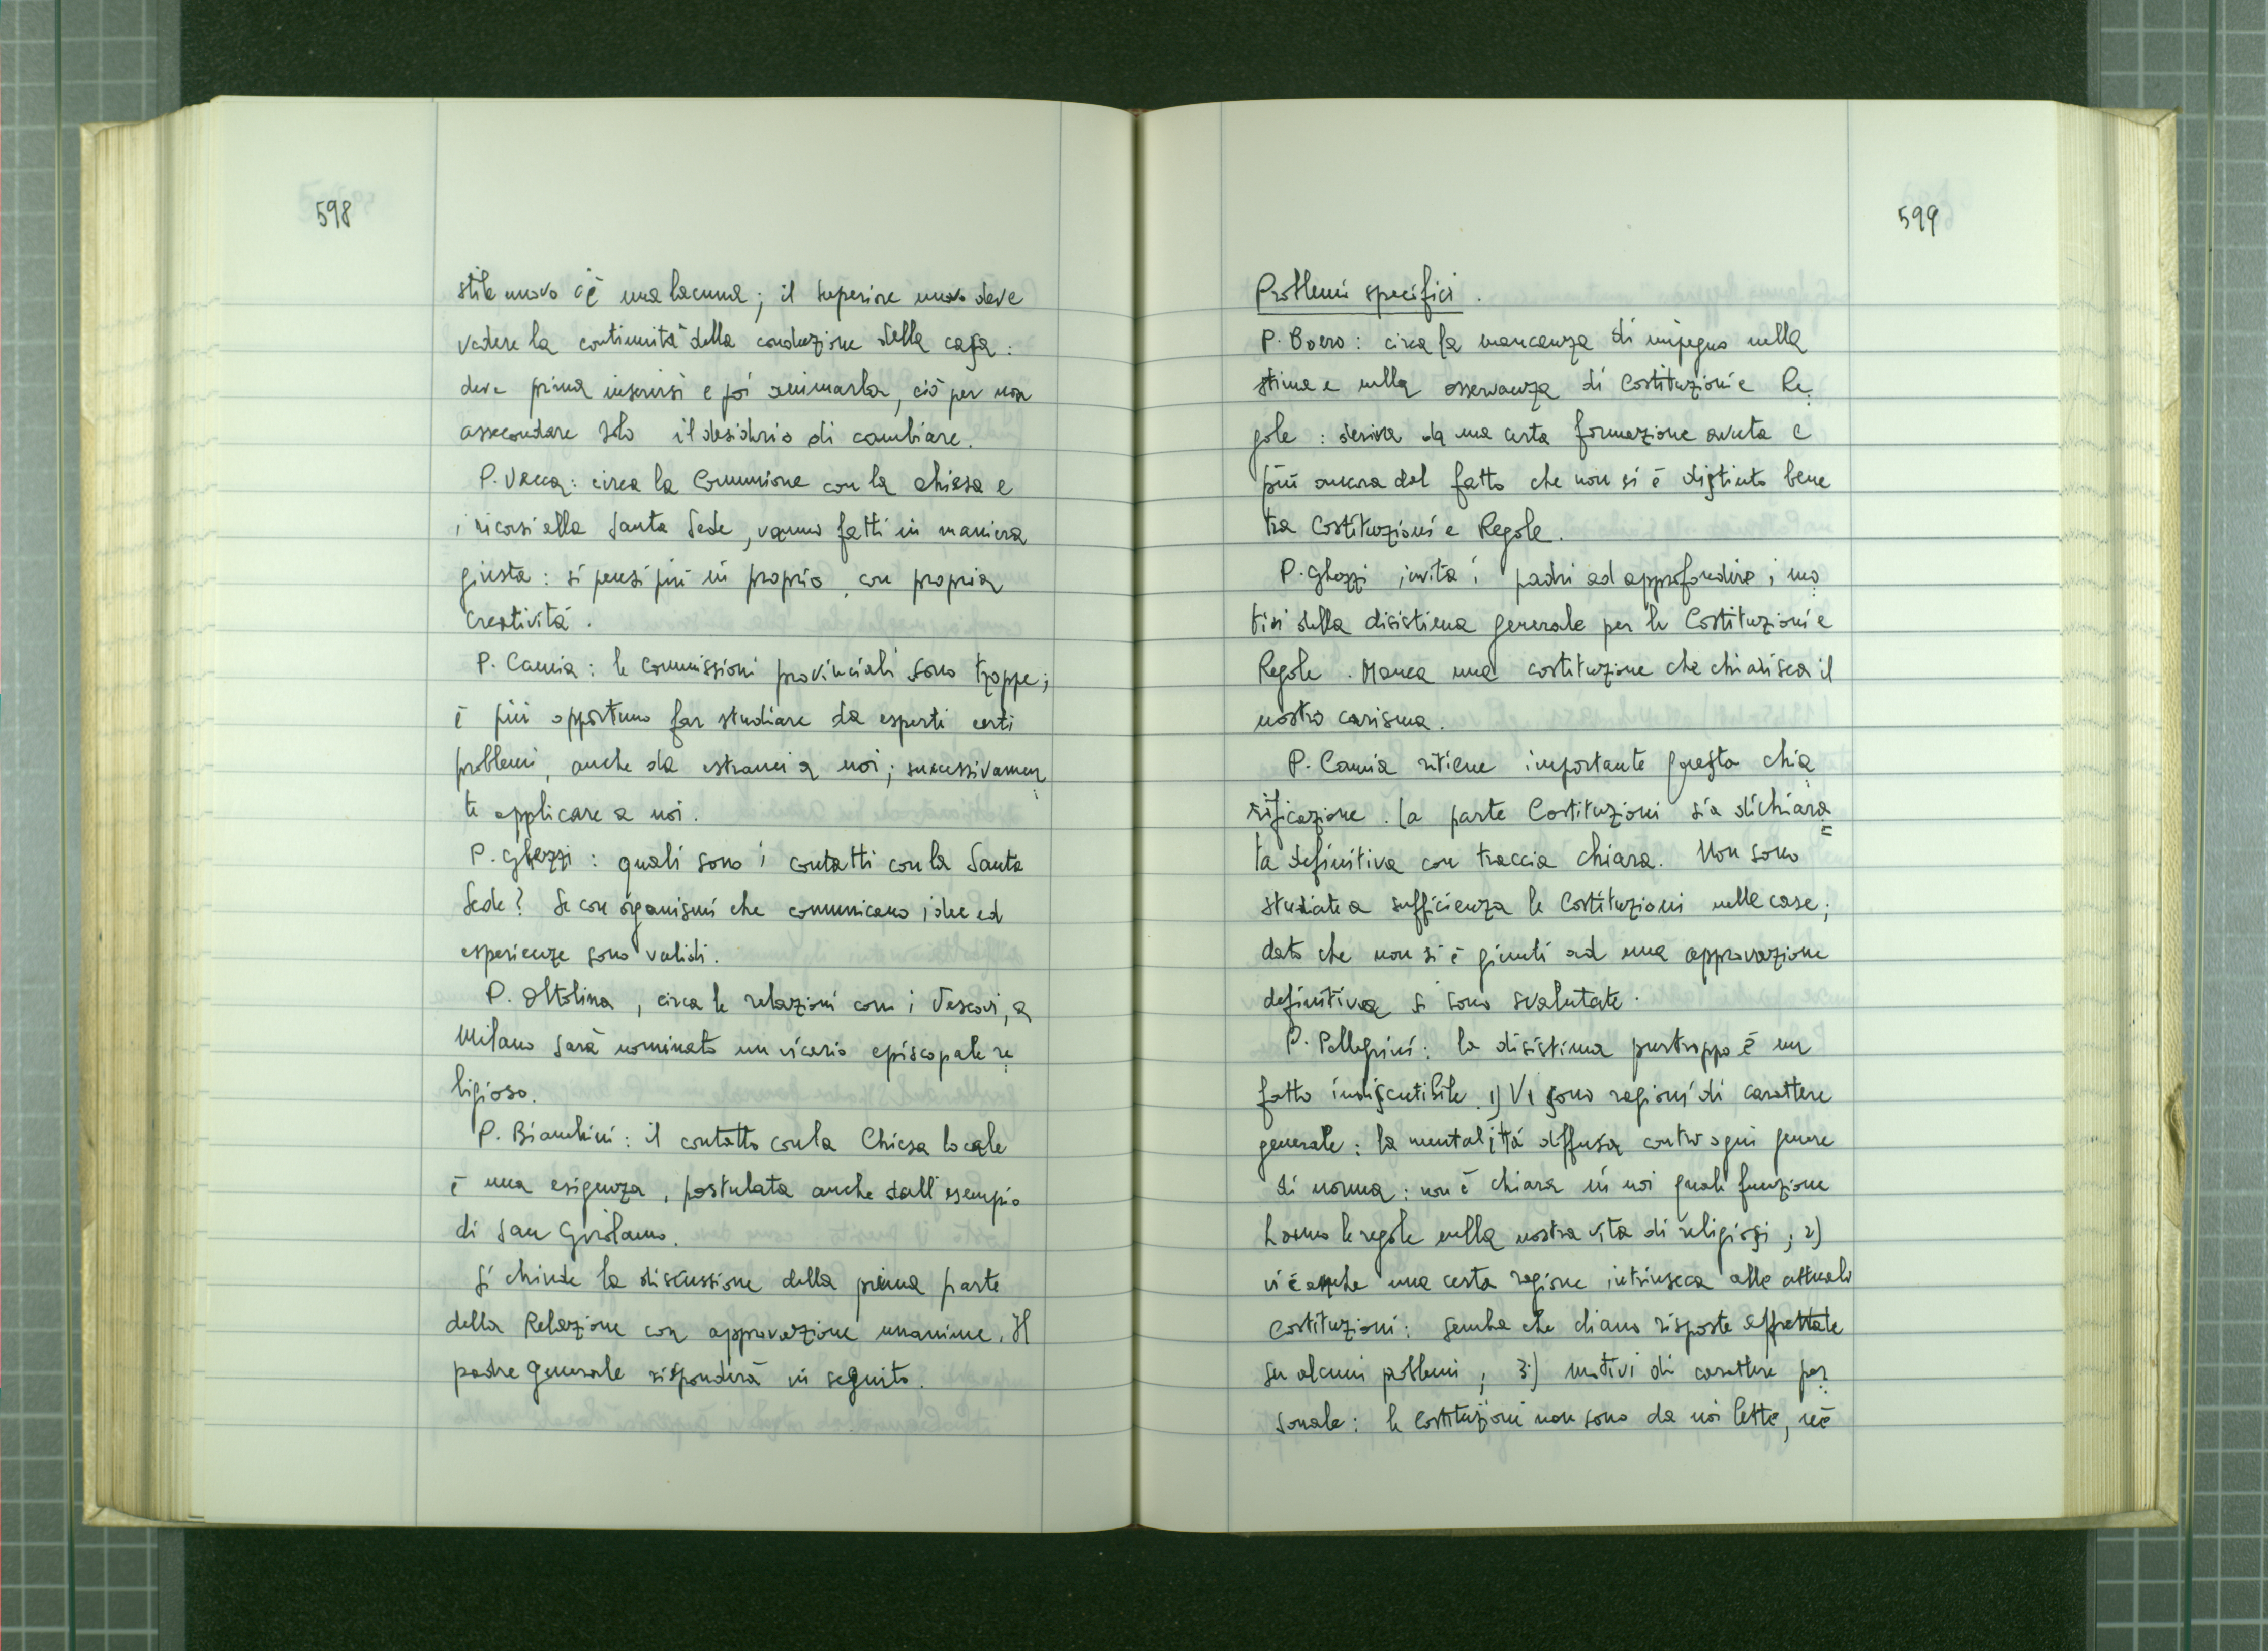 598
stile nuovo c'è una lacuna; il superiore nuovo deve
vedere la continuità della conduzione della casa:
deve prima inserirsi e poi animarla, ciò per non
assecondare solo il desiderio di cambiare.
P. Vacca: circa la Comunione con la chiesa e
i ricorsi alla Santa Sede, vanno fatti in maniera
giusta: si pensi più in proprio, con propria
creatività.
P. Camia: le Commissioni provinciali sono troppe;
è più opportuno far studiare da esperti certi
problemi, anche da estranei a noi; successivamen
te applicare a noi.
P. Ghezzi: quali sono i contatti con la Santa
Sede? Se con organismi che comunicano idee ed
esperienze sono validi.
P. Oltolina, circa le relazioni con i Vescovi, a
Milano sarà nominato un vicario episcopale re
ligioso.
P. Bianchini: il contatto con la Chiesa locale
è una esigenza, postulata anche dall'esempio
di San Girolamo.
Si chiude la discussione della prima parte
della Relazione con approvazione unanime. Il
padre Generale risponderà in seguito.
599
Problemi specifici.
P. Boero: circa la mancanza di impegno nella
stima e nella osservanza di Costituzioni e Re
gole: deriva da una certa formazione avuta e
più ancora dal fatto che non si è distinto bene
tra Costituzioni e Regole.
P. Ghezzi invita i padri ad approfondire i mo
tivi della disistima generale per le Costituzioni e
Regole. Manca una costituzione che chiarisca il
nostro carisma.
P. Camia ritiene importante questa chia
rificazione. La parte Costituzioni sia dichiara=
ta definitiva con traccia chiara. Non sono
studiate a sufficienza le Costituzioni nelle case;
dato che non si è giunti ad una approvazione
definitiva si sono svalutate.
P. Pellegrini: la disistima purtroppo è un
fatto indiscutibile. 1) Vi sono ragioni di carattere
generale: la mentalità diffusa contro ogni genere
di norma: non è chiara in noi quale funzione
hanno le regole nella nostra vita di religiosi; 2)
vi è anche una certa ragione intrinseca alle attuali
Costituzioni: sembra che diano risposte affrettate
su alcuni problemi; 3) motivi di carattere per
sonale: le Costituzioni non sono da noi lette, nè